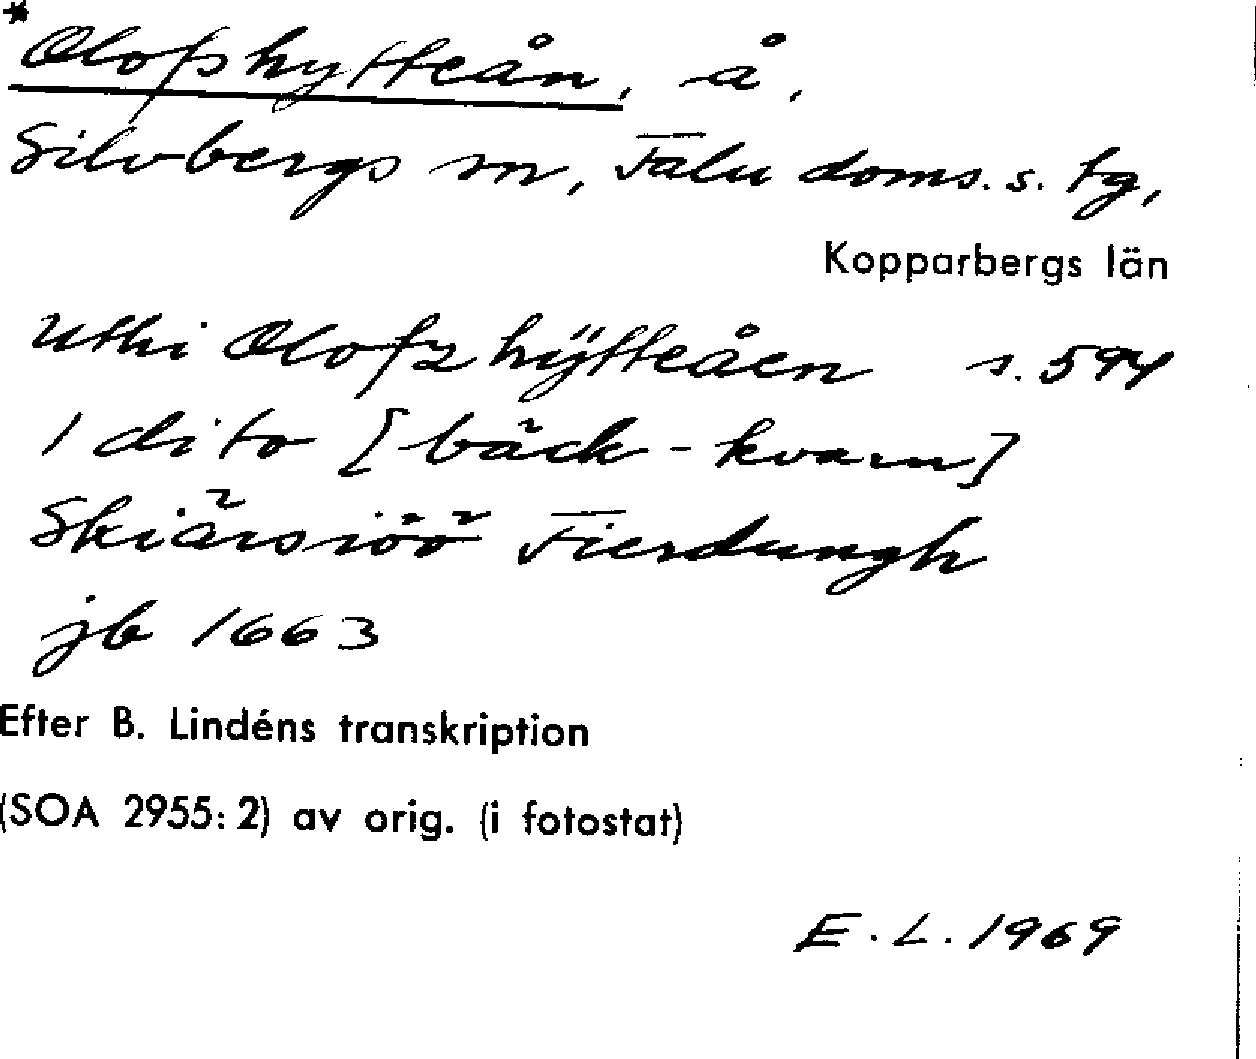 *Olofshytteån, å,
Silvbergs sn, Falu doms. s. tg,
Kopparbergs län
Uthi Olofz hÿtteåen s. 594
1 dito [bäck-kvarn]
Skiärsiöö Fierdungh
jb 1663
Efter B. Lindéns transkription
(SOA 2955:2) av orig. (i fotostat)
E. L. 1969